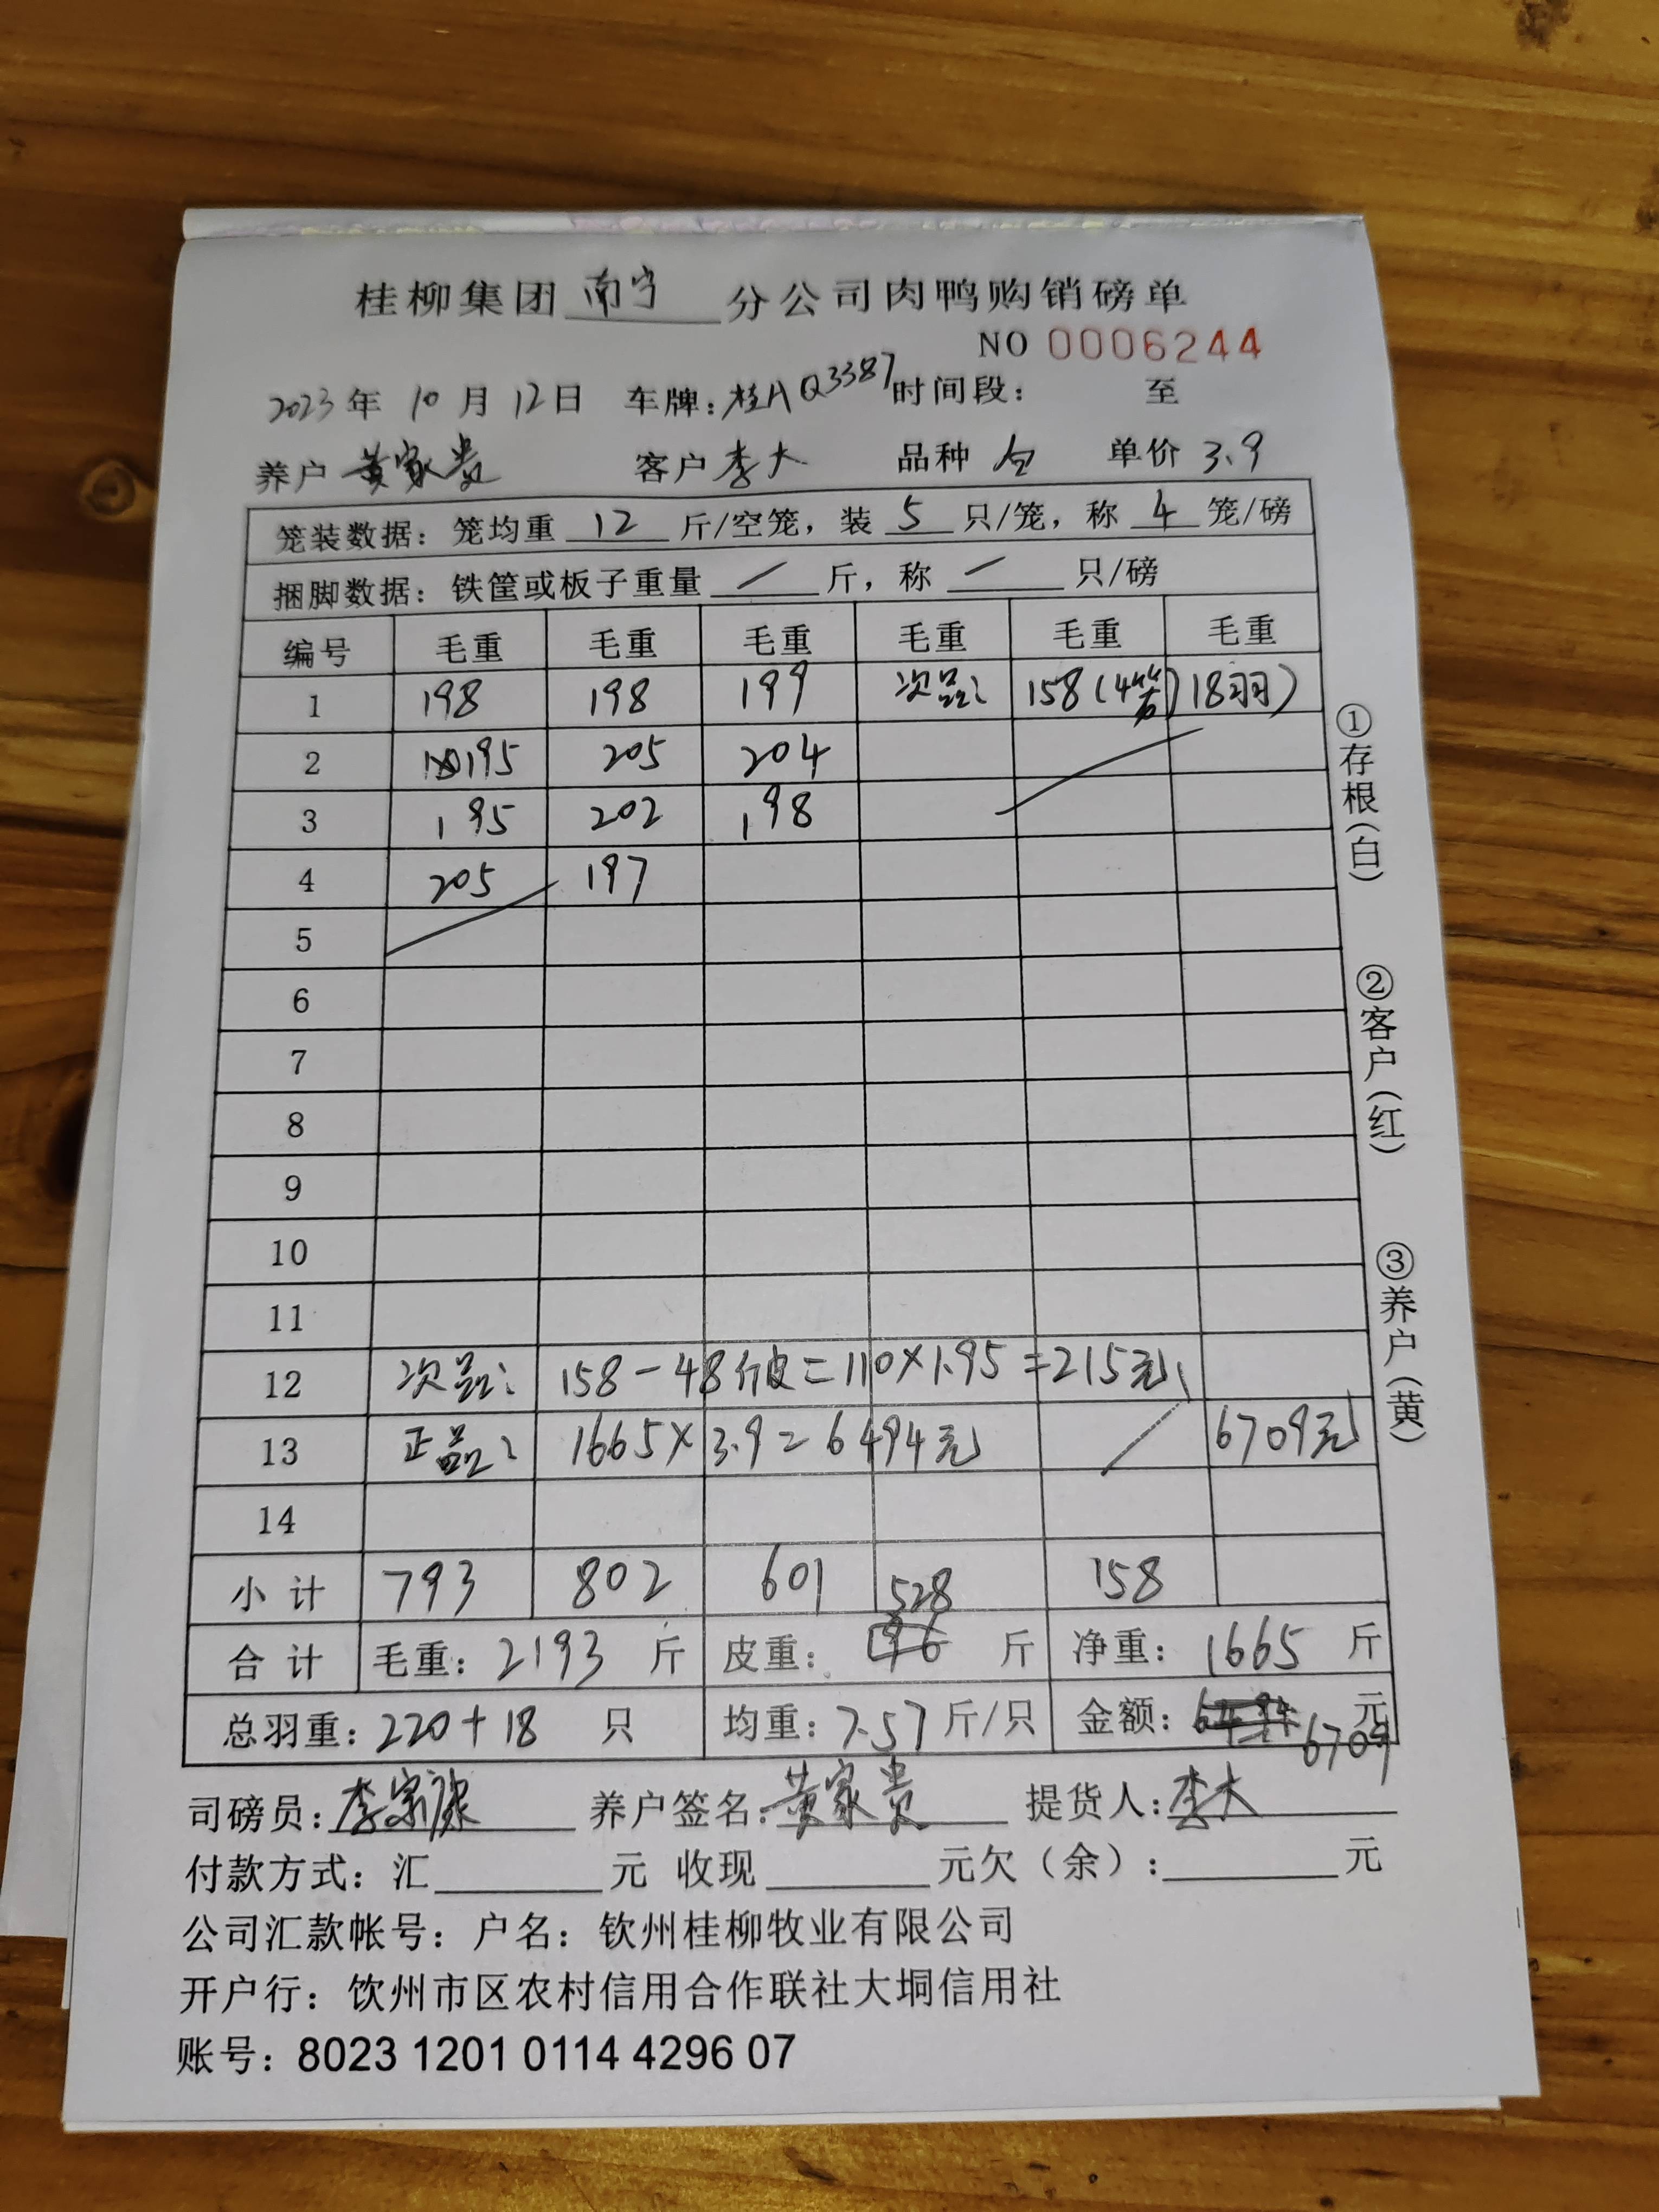 桂柳集团南宁分公司肉鸭购销磅单
NO 0006244
2023年 10月 12日 车牌：桂A Q3387 时间段： 至
养户 黄家贵 客户 李大 品种 白 单价 3.9
笼装数据：笼均重 12 斤/空笼，装 5 只/笼，称 4 笼/磅
捆脚数据：铁筐或板子重量 / 斤，称 / 只/磅
编号 毛重 毛重 毛重 毛重 毛重 毛重
1 198 198 199 次品： 158(4笼)18羽)
2 195 205 204
3 195 202 198
4 205 197
5
6
7
8
9
10
11
12 次品： 158-48斤皮=110×1.95=215元
13 正品： 1665×3.9=6494元 / 6709元
14
小计 793 802 601 158
528
合计 毛重：2193 斤 皮重：96 斤 净重：1665 斤
总羽重：220+18 只 均重：7.57 斤/只 金额：6494 元
6709
司磅员： 养户签名：黄家贵 提货人：李大
付款方式：汇 元 收现 元欠（余）： 元
公司汇款帐号：户名：钦州桂柳牧业有限公司
开户行：钦州市区农村信用合作联社大垌信用社
账号：8023 1201 0114 4296 07
①存根（白）
②客户（红）
③养户（黄）